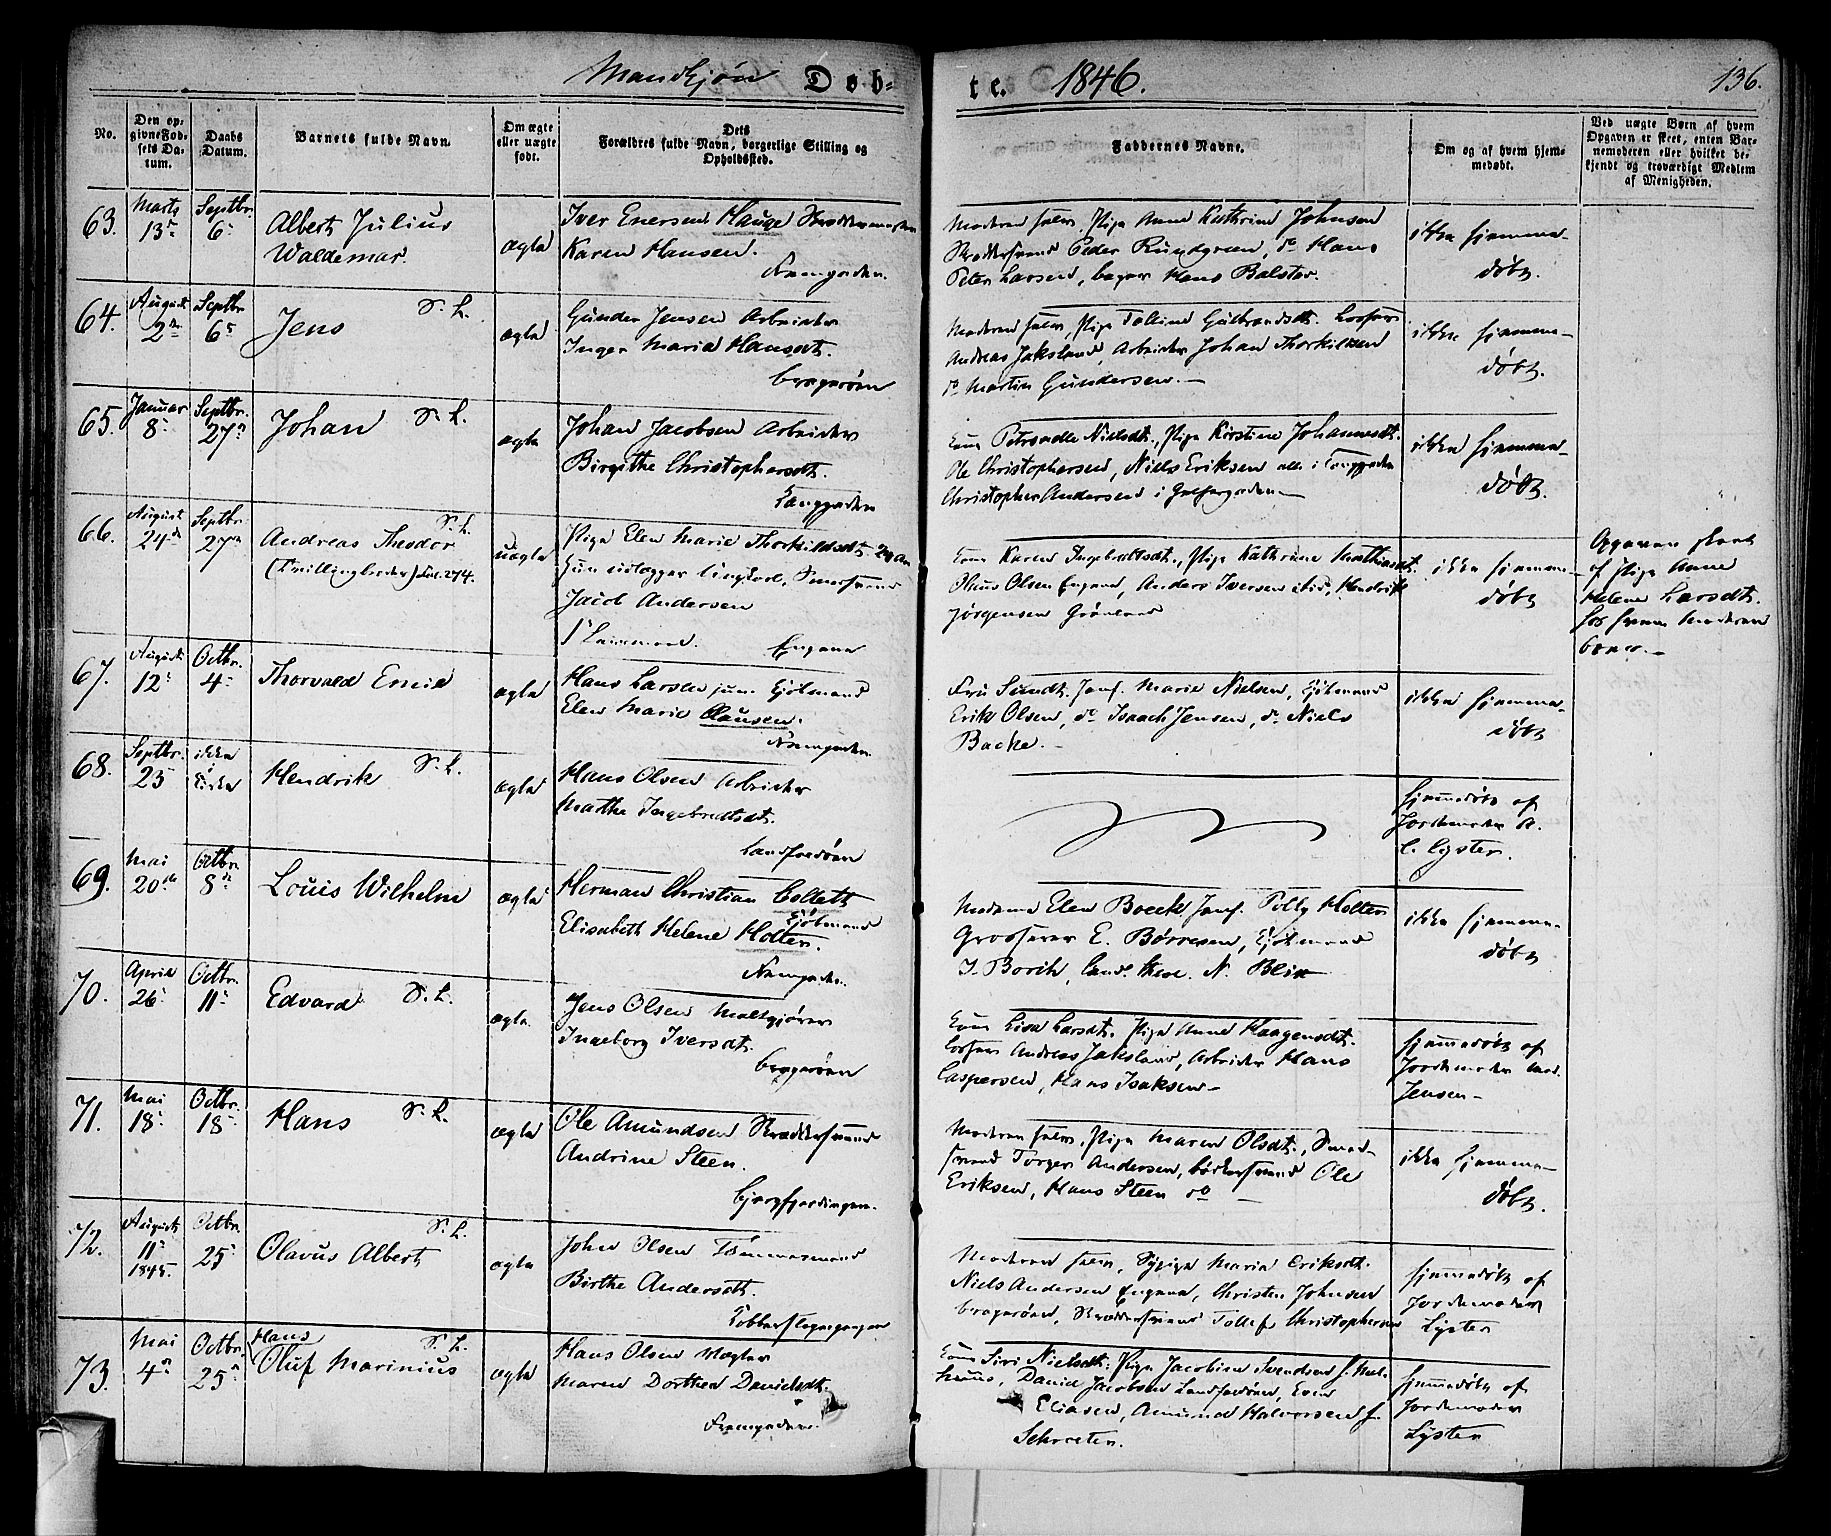 Mandkjøn Døb-
te. 1846.
136.
No.
Den op-
givne Fød-
sels Da-
tum.
Daabs
Datum.
Barnets fulde Navn.
Om ægte
eller uægte
født.
Dets
Forældres fulde Navn, borgerlige Stilling og
Opholdssted.
Faddernes Navne.
Om og af hvem hjem-
medøbt.
Ved uægte Børn af hvem
Opgaven er skeet, enten Bar-
nemoderen eller hvilket be-
kjendt og troværdigt Medlem
af Menigheden.
63. Marts 13de Septbr. 6te
Albert Julius
Waldemar.
ægte
Iver Enersen Hauge
Karen Hansen.
Moderen selv, Pige Anne Kathrine Johnsen
Peder Rundgreen, do Hans
Peter Larsen, Hans Balster.
ikke hjemme-
døbt.
64. August 2den Septbr. 6te
Jens S. L.
ægte
Gunder Jensen Arbeider
Inger Maria Hansdt.
Bragerøen
Moderen selv, Pige Gulbrandsdt.
Andreas Jaksland, Arbeider Johan Thorkildsen
do Martin Gundersen.—
ikke hjemme-
døbt.
65. Januar 8de Septbr. 27de
Johan S. L.
ægte
Johan Jacobsen Arbeider
Birgithe Christophersdt.
Langgaden
Kone Petronelle Nielsdt., Pige Kirstine Johannesdt.
Ole Christophersen, Niels Eriksen alle i Langgaden
Christopher Andersen i
ikke hjemme-
døbt.
66. August 24de Septbr. 27de
S. L.
Andreas Theodor
(Tvillingbroder)
uægte
Pige Elen Marie Thorkildsdt.
Hun udlægger Ungkarl,
Jacob Andersen
Engene
Kone Karen Ingebretsdt., Pige Kathrine Mathisdt.
Olaus Olsen Engene, Anders Iversen, Hendrik
Jørgensen Grønland
ikke hjemme-
døbt
Opgaven skeet
af Pige Anne
Helene Larsdt.
hos hvem Moderen
boer.—
67. August 12te Octbr. 4de
Thorvald Emil
ægte
Hans Larsen jun. Kjøbmand
Elen Marie Clausen.
Fru Sundt. Jomf. Marie Nielsen, Kjøbmand
Erik Olsen, do Isaach Jensen, do Niels
Backe.—
ikke hjemme-
døbt
68. Septbr. 25 ikke
i
Kirke
Hendrik S. L.
ægte
Hans Olsen Arbeider
Marthe Ingebretsdt.
Landfaldøen
hjemmedøbt af
Jordemoder A.
C. Lyster.
69. Mai 20de Octbr. 8de
Louis Wilhelm
ægte
Herman Christian Collett
Kjøbmand
Elisabeth Helene Holter.
Madame Elen Boeck, Jomf. Polly Holter
Grosserer E. Børresen, Kjøbmand
J. Borch, Cand. theol. N. Blix
ikke hjemme-
døbt
70. April 26de Octbr. 11te
Edvard S. L.
ægte.
Jens Olsen Maltgjører
Ingeborg Iversdt.
Bragerøen
Kone Lisa Larsdt. Pige Anne Haagensdt.
Andreas Jaksland, Arbeider Hans
Caspersen, Hans Isaksen—
hjemmedøbt af
Jordemoder Mad.
Jensen—
71. Mai 18de Octbr. 18de
Hans S. L.
ægte
Ole Amundsen
Andrine Steen.
Moderen selv, Pige Maren Olsdt.,
Torger Andersen, Ole
Eriksen, Hans Steen do —
ikke hjemme-
døbt.
72. August 11te 1845. Octbr. 25de
S. L.
Olavus Albert
ægte
John Olsen Tømmermand
Birthe Andersdt.
Moderen selv, Maria Eriksdt.
Niels Andersen Engene, Christen Johnsen
Bragerøen, Tollef Christophersen
hjemmedøbt af
Jordemoder
Lyster
73. Mai 4de Octbr. 25de
Hans S. L.
Oluf Marinius
ægte
Hans Olsen Vægter
Maren Dorthea Davidsdt.
Kone Siri Nielsdt. Pige Jacobine Svendsen
David Jacobsen Landfaldøen, Even
Eliasen, Amund Halvorsen
Schroeter.
hjemmedøbt af
Jordemoder
Lyster